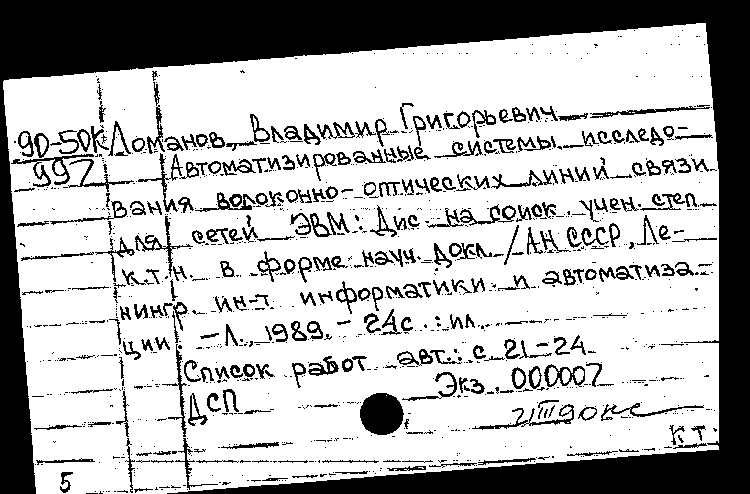 90-50к Ломанов, Владимир Григорьевич
997 Автоматизированные системы исследо-
вания волоконно-оптических линий связи
для сетей ЭВМ: Дис. на соиск. учен. степ
к.т.н. в форме науч. докл. /АН СССР, Ле-
нингр. ин-т информатики и автоматиза-
ции. – Л., 1989. – 24с. : ил.
Список работ авт.: с 21-24
ДСП Экз. 000007
к т.
5